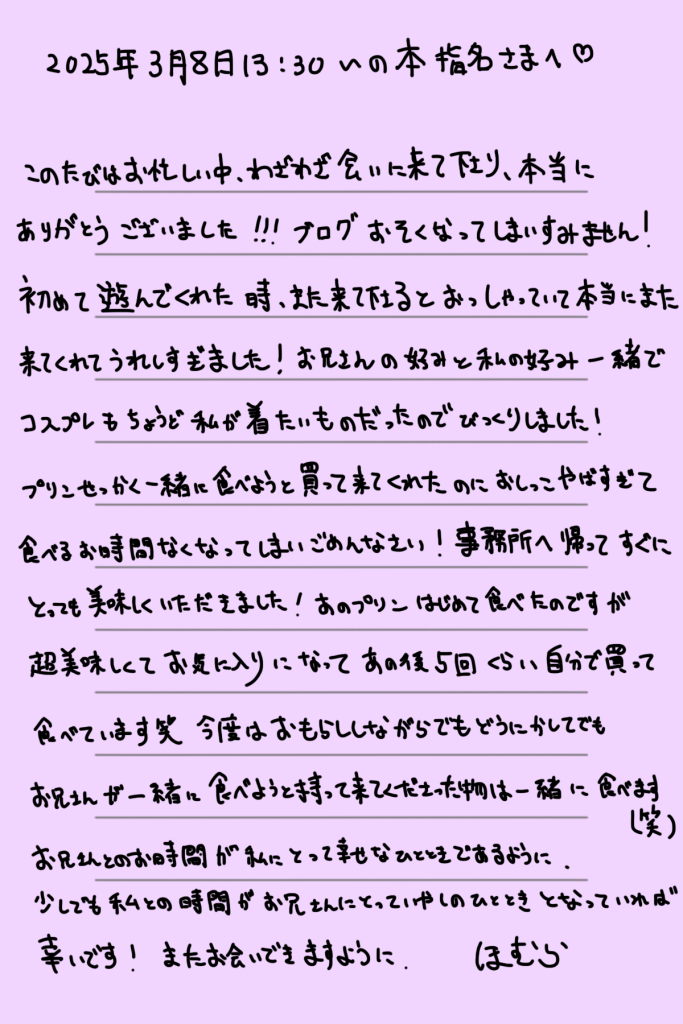 2025年3月8日13:30 いの本指名さまへ♡
このたびはお忙しい中、わざわざ会いに来て下さり、本当に
ありがとうございました!!! ブログおそくなってしまいすみません!
初めて遊んでくれた時、また来て下さるとおっしゃっていて本当にまた
来てくれてうれしすぎました! お兄さんの好みと私の好み一緒で
コスプレもちょうど私が着たいものだったのでびっくりしました!
プリンせっかく一緒に食べようと買って来てくれたのにおしっこやばすぎて
食べるお時間なくなってしまいごめんなさい! 事務所へ帰ってすぐに
とっても美味しくいただきました! あのプリンはじめて食べたのですが
超美味しくてお気に入りになってあの後5回くらい自分で買って
食べています笑 今度はおもらししながらでもどうにかしてでも
お兄さんが一緒に食べようと持って来てくださった物は一緒に食べます
(笑)
お兄さんとのお時間が私にとって幸せなひとときであるように.
少しでも私との時間がお兄さんにとっていやしのひとときとなっていれば
幸いです! またお会いできますように. ほむら